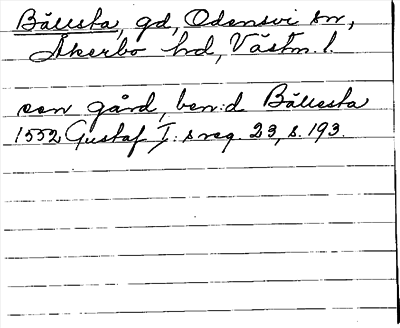 Bällsta, gd, Odensvi sn,
Åkerbo hd, Västm. l.
een gård, ben:d Bällesta
1552 Gustaf I:s reg. 23, s. 193.